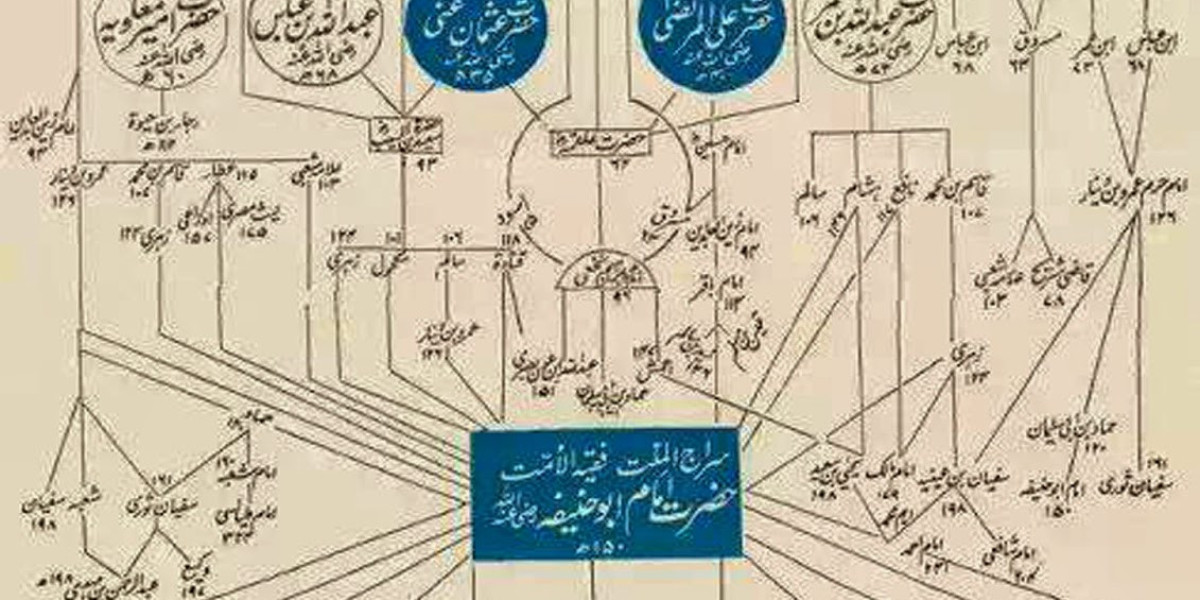 حضرت امیر معاویہ
رضی اللہ عنہ
۶۰ھ
عبداللہ بن عباس
رضی اللہ عنہ
۶۸ھ
حضرت عثمان غنی
رضی اللہ عنہ
۳۵ھ
حضرت علی المرتضیٰ
رضی اللہ عنہ
حضرت عبداللہ بن
رضی اللہ عنہ
ابن عباس
۶۸
مسروق
۶۳
ابن عمر
۷۳
ابن عباس
امام زین العابدین
۹۴
رجاء بن حیوۃ
عمرو بن دینار
۱۲۶
قاسم بن محمد
۱۰۷
عطاء ۱۱۵
علامہ شعبی
۱۰۳
۹۳
حضرت علقمہ
۶۲
امام حسین
سالم
۱۰۶
ہشام
نافع
قاسم بن محمد
۱۰۷
امام حرم عمرو بن دینار
۱۲۶
زہری ۱۲۴
اوزاعی
۱۵۷
لیث مصری
۱۷۵
اسود
مسروق
امام زین العابدین
۹۴
۱۲۴
زہری
۱۰۱
مکحول
۱۰۶
سالم
۱۱۸
قتادۃ
امام ابراہیم نخعی
امام باقر
۱۱۴
علامہ شعبی
۱۰۳
قاضی شریح
۷۸
عمرو بن دینار
۱۲۶
۱۵۱
حماد بن ابی سلیمان
اعمش
زہری
۱۲۴
حماد بن ابی سلیمان
۱۲۰
سراج الملت فقیہ الامت
حضرت امام ابو حنیفہ رضی اللہ عنہ
۱۵۰ھ
۱۶۰
امام شعبہ
۱۶۱
سفیان ثوری
شعبہ
سفیان بن
۱۹۸
امام طیالسی
وکیع
۱۹۷
عبدالرحمن بن مہدی ۱۹۸ھ
یحییٰ بن سعید
۱۹۸
امام مالک
۱۷۹
سفیان بن عیینہ
۱۹۸
امام ابو حنیفہ
۱۵۰
۱۶۱
سفیان ثوری
امام محمد
امام احمد
۲۴۱
امام شافعی
۲۰۴